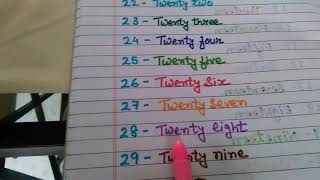 22 - Twenty two
23 - Twenty three
24 - Twenty four
25 - Twenty five
26 - Twenty Six
27 - Twenty Seven
28 - Twenty eight
29 - Twenty nine